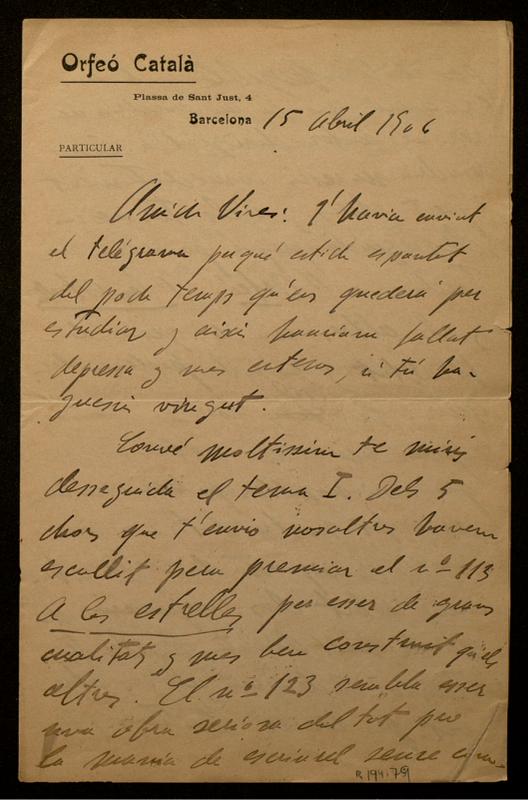 Orfeó Català
Plassa de Sant Just, 4
Barcelona 15 abril 1906
PARTICULAR
Amich Vives: T' havia enviat
el telégrama perqué estich espantat
del poch temps qu'ens quedará per
estudiar y aixís hauriam fallat
depressa y mes estesos, si tú ha-
guesis vingut.
Convé moltissim te miris
desseguida el tema I. Dels 5
chors que t'envio nosaltres havem
escullit pera premiar el nº 113
A les estrelles per esser de grans
qualitats y mes ben construit qu'els
altres. El nº 123 sembla esser
una obra seriosa del tot pro
la mania de escriurel sense com-
R. 194.79